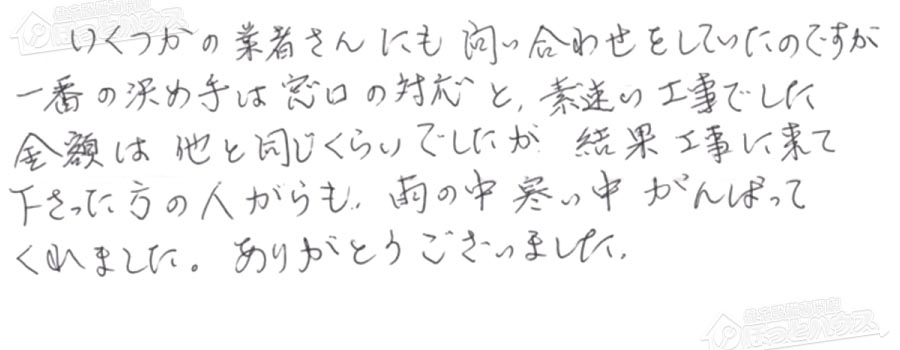 いくつかの業者さんにも問い合わせをしていたのですが
一番の決め手は窓口の対応と、素速い工事でした
金額は他と同じくらいでしたが 結果工事に来て
下さった方の人がらも、雨の中寒い中 がんばって
くれました。ありがとうございました。
ほっとハウス